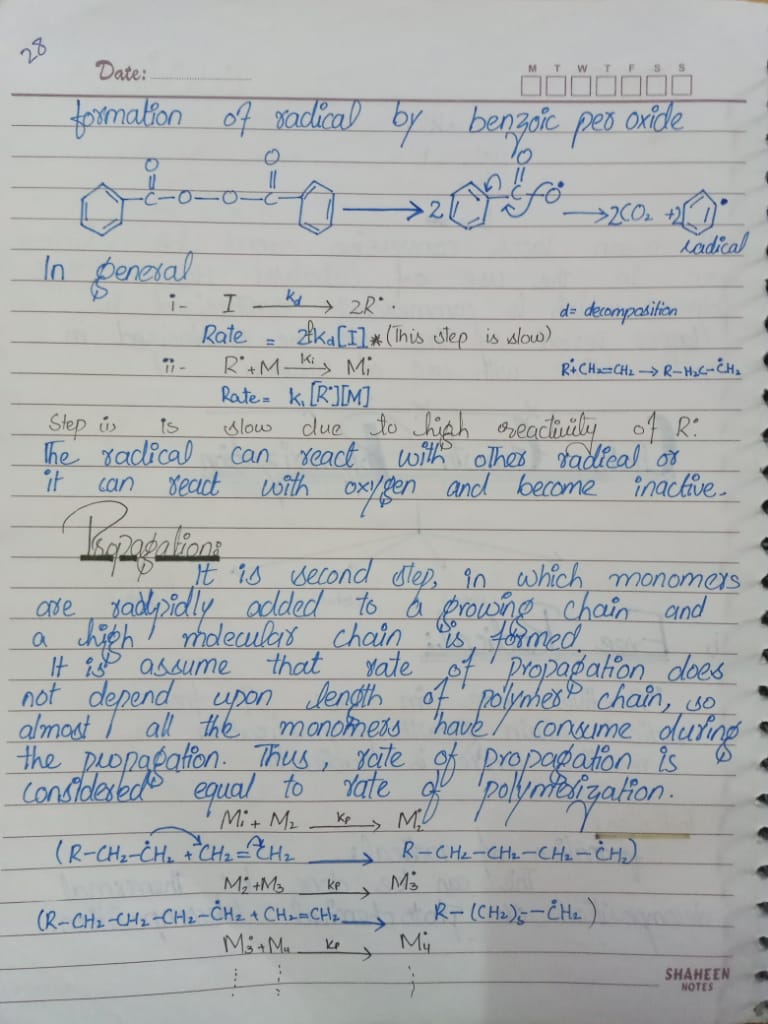 28
Date:
M T W T F S S
formation of radical by benzoic per oxide
O O O
C—O—O—C → 2 C O• → 2CO₂ + 2 •
radical
In general
i- I —kd→ 2R•
d = decomposition
Rate = 2fkd[I] * (This step is slow)
ii- R• + M —ki→ M₁•
R•+CH₂=CH₂ → R–H₂C–ĊH₂
Rate = ki[R•][M]
Step is slow due to high reactivity of R•
The radical can react with other radical or
it can react with oxygen and become inactive.
Propagation:
It is second step, in which monomers
are radpidly added to a growing chain and
a high molecular chain is formed.
It is assume that rate of propagation does
not depend upon length of polymer chain, so
almost all the monomers have consume during
the propagation. Thus, rate of propagation is
considered equal to rate of polymerization.
M₁• + M₂ —kp→ M₂•
(R–CH₂–ĊH₂ + CH₂=CH₂ → R–CH₂–CH₂–CH₂–ĊH₂)
M₂• + M₃ —kp→ M₃•
(R–CH₂–CH₂–CH₂–ĊH₂ + CH₂=CH₂ → R–(CH₂)₅–ĊH₂)
M₃• + M₄ —kp→ M₄•
SHAHEEN
NOTES